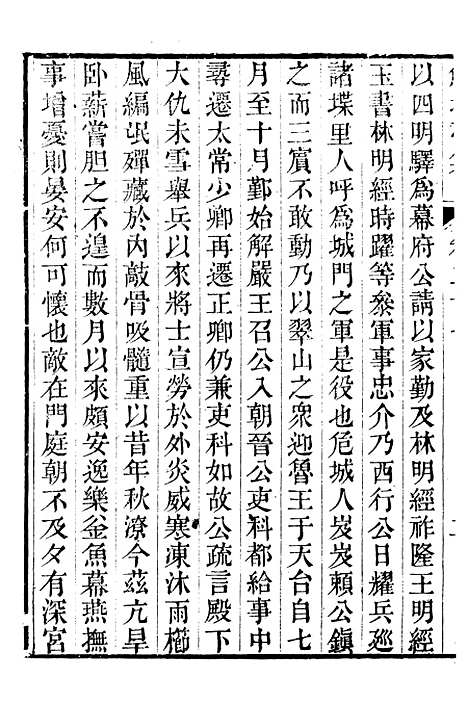 以四明驛爲幕府公請以家勤及林明經祚隆王明經
玉書林明經時躍等參軍事忠介乃西行公日耀兵巡
諸堞里人呼爲城門之軍是役也危城人岌岌賴公鎮
之而三賓不敢動乃以翠山之衆迎魯王于天台自七
月至十月鄞始解嚴王召公入朝晉公吏科都給事中
尋遷太常少卿再遷正卿仍兼吏科如故公疏言殿下
大仇未雪舉兵以來將士宣勞於外炎威寒凍沐雨櫛
風編氓殫藏於內敲骨吸髓重以昔年秋潦今茲亢旱
臥薪嘗胆之不遑而數月以來頗安逸樂釡魚幕燕撫
事增憂則晏安何可懷也敵在門庭朝不及夕有深宮